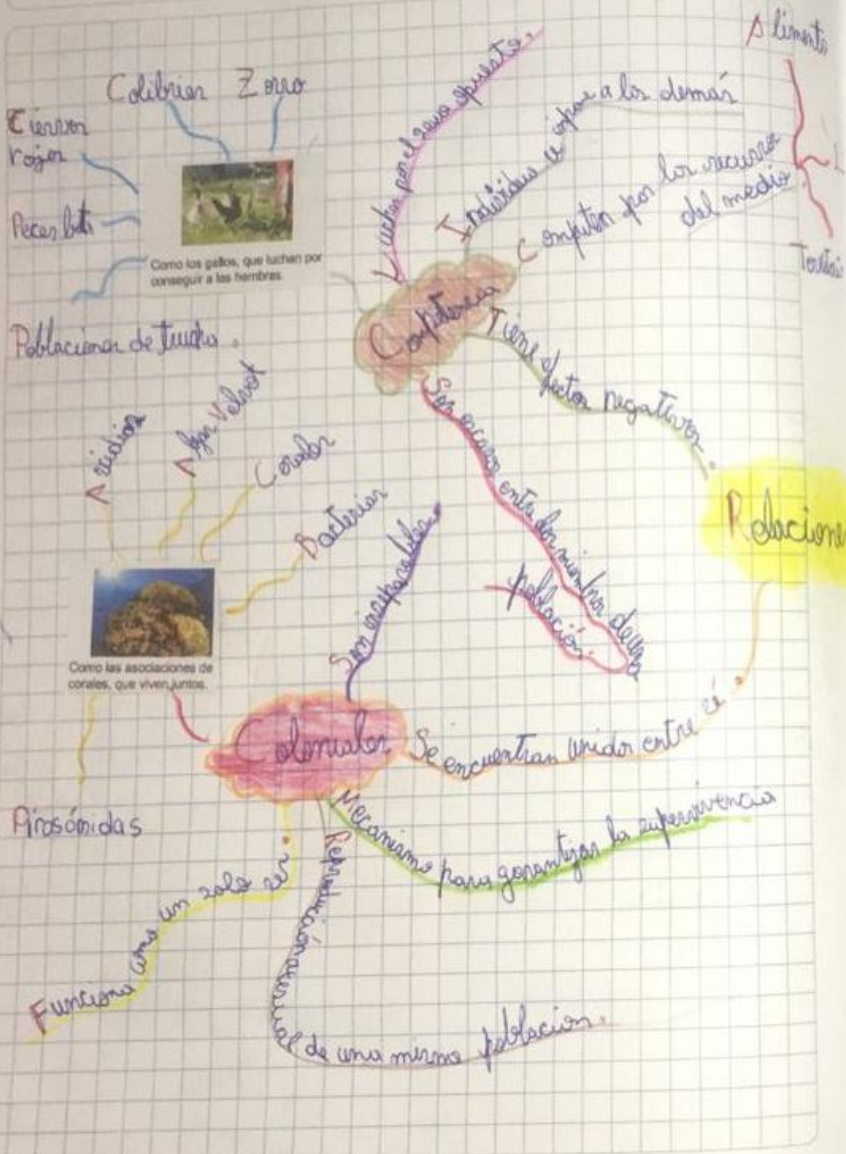 Alimento
Colibries Zorro
Ciervos
rojos
Peces beta
Como los gallos, que luchan por
conseguir a las hembras.
Poblaciones de trucha.
Luchan por el sexo opuesto.
Individuo se impone a los demás
Compiten por los recursos
del medio.
Competencia
Tiene efectos negativos.
Son escasos entre los miembros de una
población.
Relacione
Ascidias
Algas Volvox
Corales
Bacterias
Como las asociaciones de
corales, que viven juntos.
Pirosómidas
Coloniales
Son inseparables.
Se encuentran unidos entre sí.
Mecanismo para garantizar la supervivencia
Reproducción asexual de una misma población.
Funciona como un solo ser.